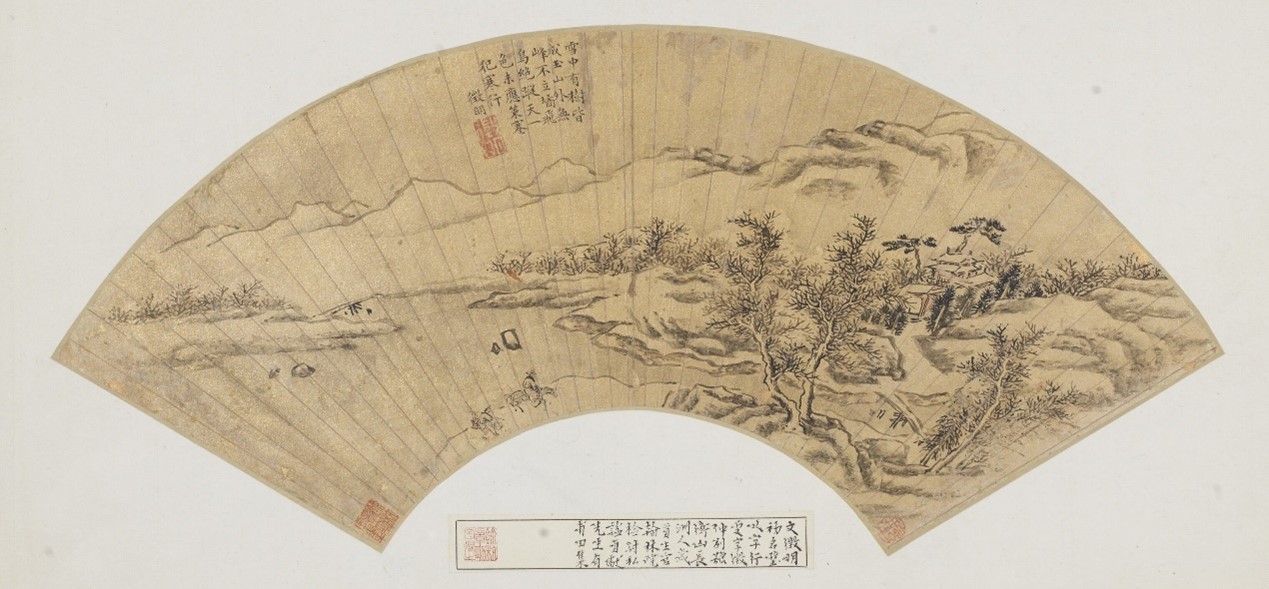 雪中有樹皆
成玉山外無
峰不立飛
鳥絕天一
色未應策蹇
犯寒行
徵明
文徵明
初名璧
以字行
更字徵
仲別號
衡山長
洲人歲
貢生官
翰林院
待詔私
謚貞獻
先生有
甫田集